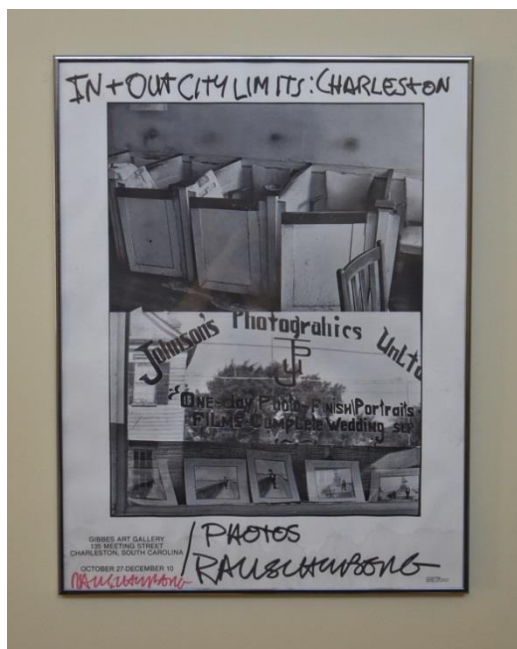 IN + OUT CITY LIMITS: CHARLESTON
Johnson's Photograhics UnLtd
JPU
ONE-day Photo-FINISH\Portraits
FILMS Complete Wedding
GIBBES ART GALLERY
135 MEETING STREET
CHARLESTON, SOUTH CAROLINA
OCTOBER 27-DECEMBER 10
RAUSCHENBERG
PHOTOS
RAUSCHENBERG